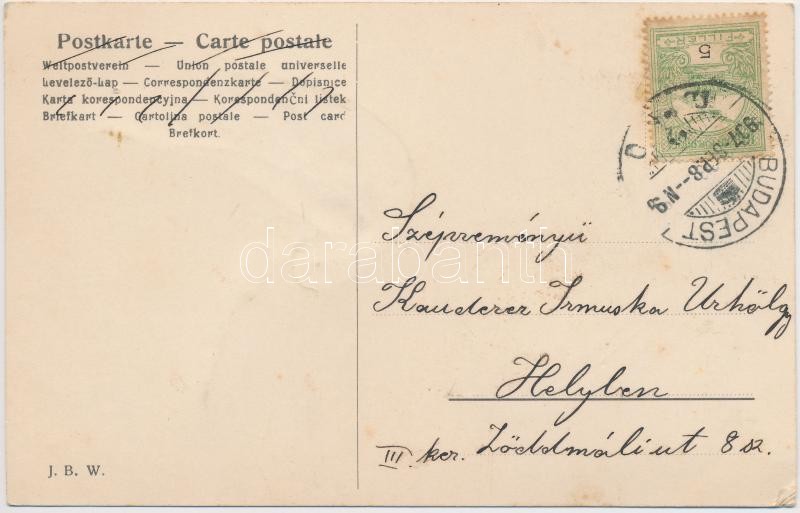 Postkarte — Carte postale
Weltpostverein — Union postale universelle
Levelező-Lap — Correspondenzkarte — Dopisnice
Karta korespondencyjna — Korespondenční listek
Briefkart — Cartolina postale — Post card
Brefkort.
FILLÉR
5
BUDAPEST
907 SEP. 8 N 9
Szépreményü
Kauderer Irmuska Urhölgy
Helyben
III. ker. Zölddmáli ut 8 sz.
J. B. W.
darabanth